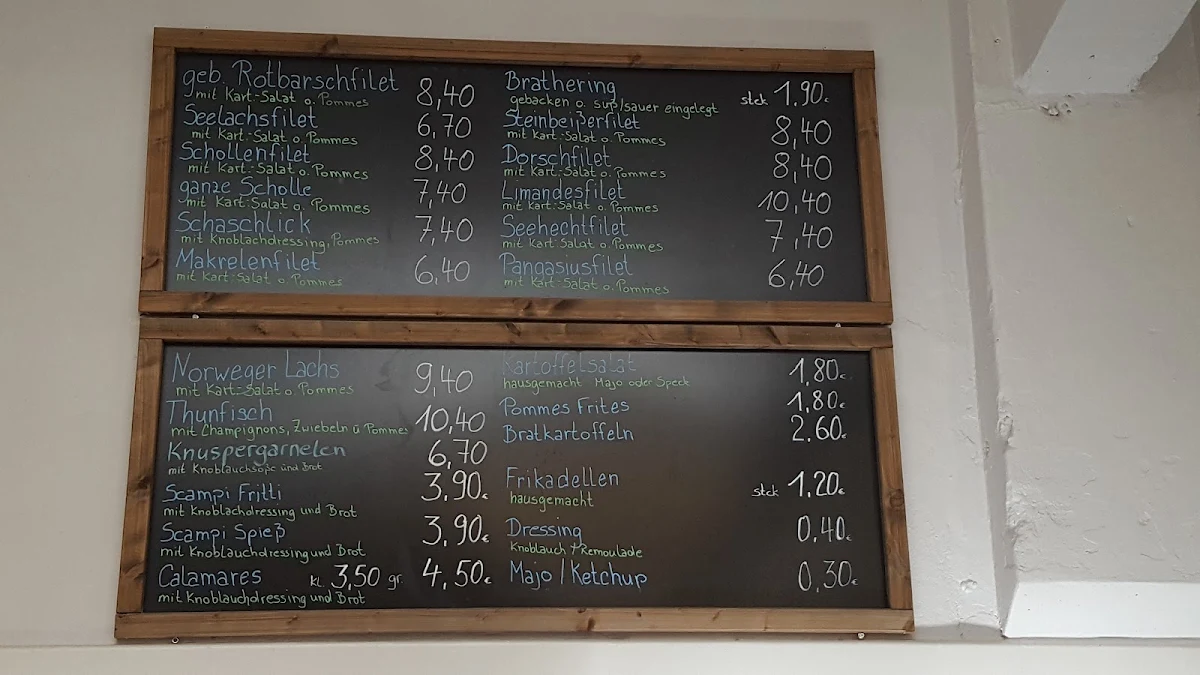 geb. Rotbarschfilet 8,40
mit Kart.-Salat o. Pommes
Seelachsfilet 6,70
mit Kart.-Salat o. Pommes
Schollenfilet 8,40
mit Kart.-Salat o. Pommes
ganze Scholle 7,40
mit Kart.-Salat o. Pommes
Schaschlick 7,40
mit Knoblachdressing, Pommes
Makrelenfilet 6,40
mit Kart.-Salat o. Pommes
Brathering stck 1.90€
gebacken o. süß/sauer eingelegt
Steinbeißerfilet 8,40
mit Kart.-Salat o. Pommes
Dorschfilet 8,40
mit Kart.-Salat o. Pommes
Limandesfilet 10,40
mit Kart.-Salat o. Pommes
Seehechtfilet 7,40
mit Kart.-Salat o. Pommes
Pangasiusfilet 6,40
mit Kart.-Salat o. Pommes
Norweger Lachs 9,40
mit Kart.-Salat o. Pommes
Thunfisch 10,40
mit Champignons, Zwiebeln ü Pommes
Knuspergarnelen 6,70
mit Knoblauchsoße und Brot
Scampi Fritti 3,90€
mit Knoblachdressing und Brot
Scampi Spieß 3,90€
mit Knoblauchdressing und Brot
Calamares kl. 3,50 gr. 4,50€
mit Knoblauchdressing und Brot
Kartoffelsalat 1,80€
hausgemacht Majo oder Speck
Pommes Frites 1,80€
Bratkartoffeln 2.60€
Frikadellen stck 1,20€
hausgemacht
Dressing 0,40€
Knoblauch + Remoulade
Majo / Ketchup 0,30€